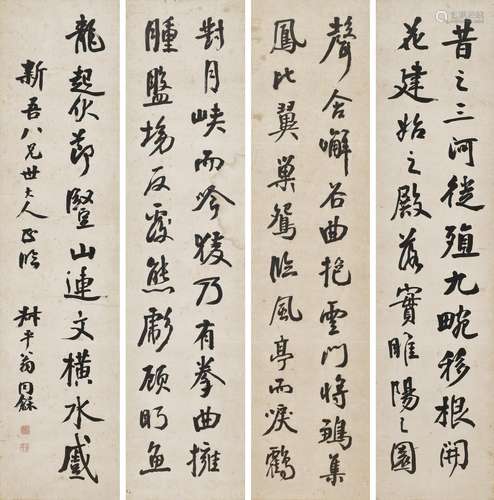 昔之三河徙殖九畹移根開
花建始之殿落實睢陽之園
聲含嶰谷曲抱雲門將鶵集
鳳比翼巢鴛臨風亭而唳鶴
對月峽而吟猨乃有拳曲擁
腫盤坳反覆熊彪顧盼魚
龍起伏節豎山連文橫水蹙
新吾八兄世大人正臨 叔平翁同龢